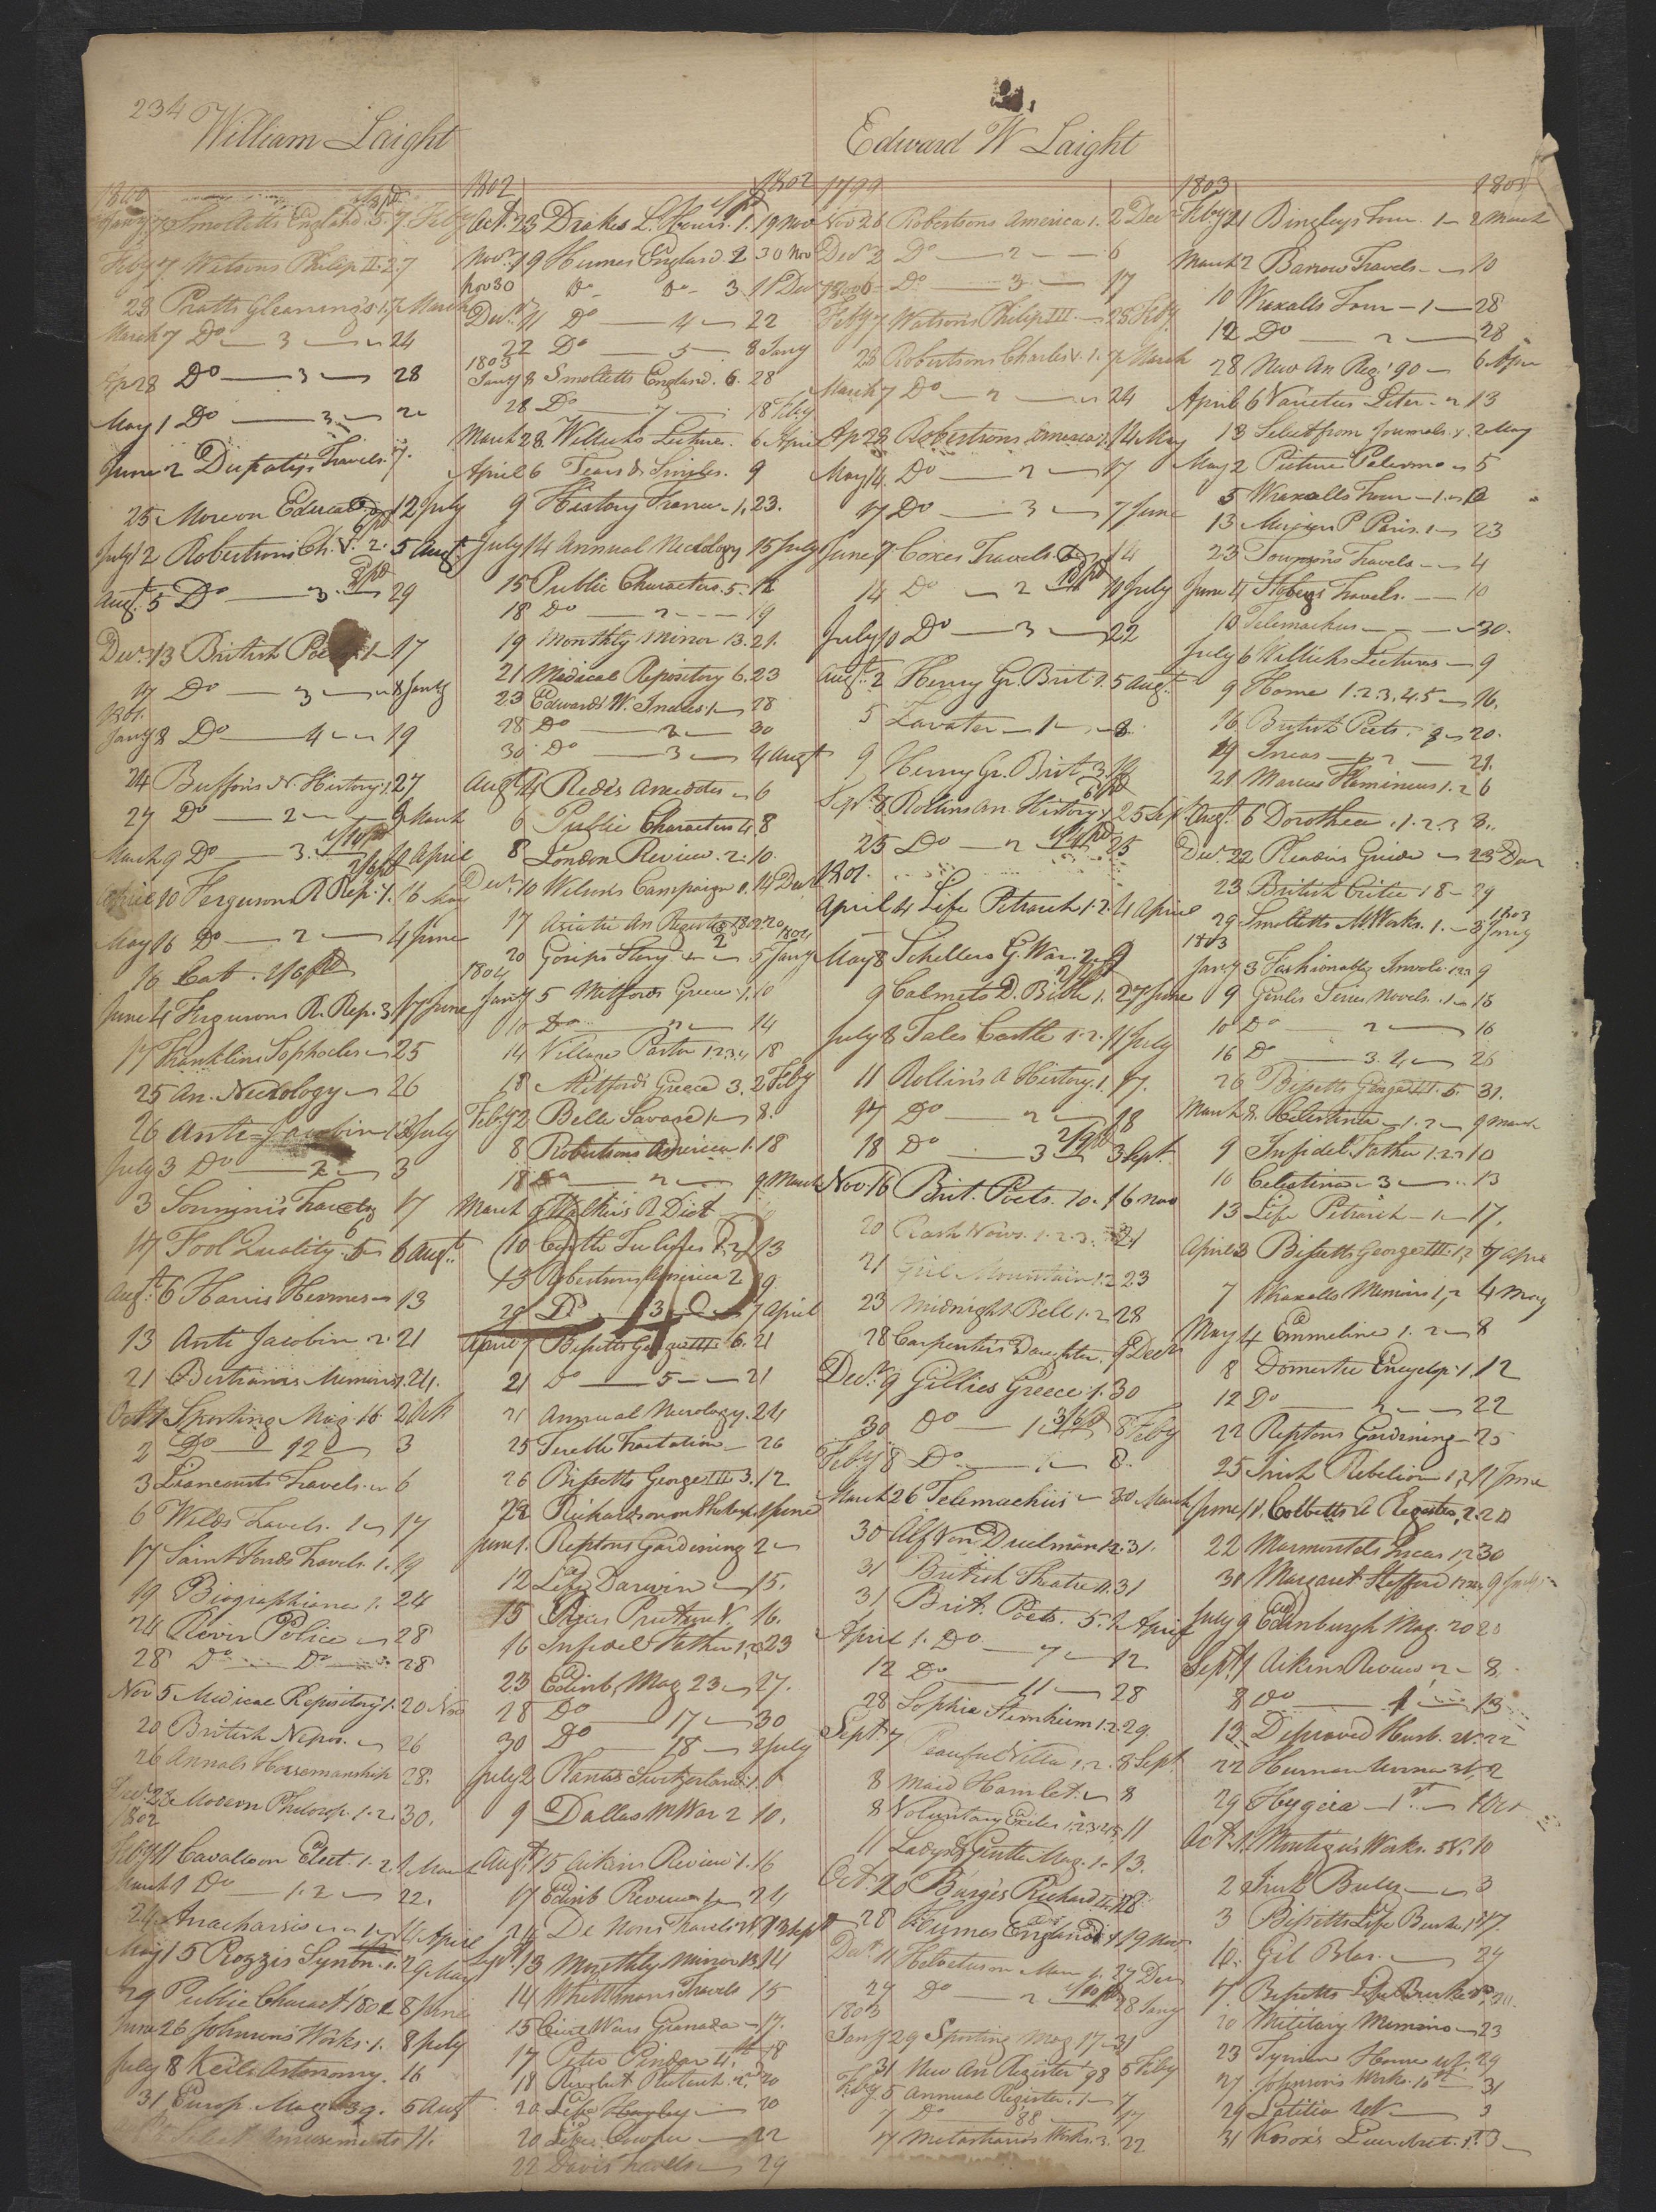 234
William Laight
1800
7 Smolletts England. 5. 7 Feby
Feby 7 Watsons Philip II. 2. 7
28 Pratts Gleanings 1. 7 March
March 7 Do 3 24
Ap 28 Do 3 28
May 1 Do 3 2
June 2 Dupaty's Travels. 7.
25 More on Educa 12 July
July 12 Robertsons Ch. V. 2. 5 Augt
Augt. 5 Do 3. 29
Decr. 13 British Poets 1 17
17 Do 3 8 Jany
1801.
Jany 8 Do 4 19
24 Buffon's N. History 1. 27
27 Do 2 9 March
March 9 Do 3. 10 April
April 10 Fergusons R Rep. 1. 16 May
May 16 Do 2 4 June
16 Cat. 2/6 pd
June 4 Fergusons R. Rep. 3. 17 June
17 Franklins Sophocles 25
25 An. Necrology 26
26 Anti-Jacobin 1. July
July 3 Do 2 3
3 Sonnini's Travels 17
17 Fool Quality. 5 6 Augt.
Augt. 6 Harris Hermes 13
13 Anti Jacobin 2. 21
21 Bertrands Memoirs. 24.
Oct 1 Sporting Mag 16 2 Oct
2 Do 12 3
3 Liancourts Travels. 6
6 Welds Travels. 1 17
17 Saint Fonds Travels. 1. 19
19 Biographiana 1. 24
24 River Police 28
28 Do Do 28
Nov 5 Medical Repository 1. 20 Nov
20 British Nepos. 26
26 Annals Horsemanship 28.
Decr. 23 Modern Philosop. 1. 2. 30.
1802
Feby 11 Cavallo on Elect. 1. 2. 1 March
March 1 Do 1. 2 22.
24 Anacharsis 1 April
May 15 Piozzis Synon. 1. 2 9 May
29 Public Charact. 1802 8 June
June 26 Johnson's Works. 1. 8 July
July 8 Keils Astronomy. 16
31 Europ. Mag 39. 5 Augt
Amusements 11.
1802 1802
Oct. 23 Drakes L. Hours. 1. 19 Nov
Novr. 19 Humes England. 2 30 Nov
Nov 30 Do Do 3. 11 Dec
Decr. 11 Do 4 22
22 Do 5 8 Jany
1803
Jany 8 Smolletts England. 6. 28
28 Do 7 18 Feby
March 28 Willich's Lectures. 6 April
April 6 Tears & Smiles. 9
9 History France. 1. 23.
July 14 Annual Necrology 15 July
15 Public Characters. 5. 18
18 Do 2 19
19 Monthly Mirror 13. 21.
21 Medical Repository 6. 23
23 Edwards W. Indies. 1 28
28 Do 2 30
30 Do 3 4 Augt
Augt 4 Reeds Anecdotes 6
6 Public Characters 4. 8
8 London Review. 2. 10.
Decr. 10 Wilson's Campaign 1. 14 Decr
17 Asiatic An Register 1802. 20
20 Gossips Story. 1 2 5 Jany 1804
1804
Jany 5 Mitfords Greece. 1. 10
10 Do 2 14
14 Village Pastor 1.2.3.4 18
18 Mitfords Greece 3. 2 Feby
Feby 2 Belle Sauvage 1 8.
8 Robertsons America 1. 18
18 Do 2 9 March
March 9 Walkers R Dict
10 13
13 Robertsons America 2 29.
29 Do 3 7 April
April 7 Bissetts George III 6. 21
21 Do 5 21
21 Annual Necrology. 24
25 Terrible Tractation 26
26 Bissetts George III 3. 12.
Richardson on Shakesp. 1 June
June 1. Reptons Gardening 2
12 Life Darwin 15.
15 16.
16 Infidel Father 1, 2, 3 23
23 Edinb. Mag 23 27.
28 Do 17 30
30 Do 18 2 July
July 2 Plantas Switzerland. 1. 8
9 Dallas M War 2 10.
Augt 15 Aikins Review. 1. 16
17 Edinb Review 1 24
24 De Nons Travels 1. 13 Sept
Sept. 13 Monthly Mirror 13. 14
14 Whittmans Travels 15
15 Civil Wars Granada 17.
17 Peter Pindar 4. 18
18 20
20 Life 20
20 Life Cowper 22
22 Davis Travels 29
Edward W Laight
1799
Nov 26 Robertsons America 1. 2 Dec
Decr 2 Do 2 6
Do 3 17
Feby 7 Watson's Philip III. 28 Feby
28 Robertsons Charles V. 1. 7 March
March 7 Do 2 24
Ap 28 Robertsons America 1. 14 May
May 14 Do 2 17
17 Do 3 7 June
June 7 Coxes Travels 14
14 Do 2 10 July
July 10 Do 3 22
Augt. 2 Henry Gr. Brit. 1. 5 Augt.
5 Lavater 1 8.
9 Henry Gr. Brit. 3.
Sept. 8 Rollins An. History 1. 25 Sept.
25 Do 2 25
1801.
April 4 Life Petrarch 1. 2. 4 April
May 8 Schillers G. War. 2. 9
9 Calmets D. Bible 1. 27 June
July 8 Tales Castle 1. 2. 11 July
11 Rollin's A History. 1. 17.
17 Do 2 18
18 Do 3 3 Sept.
Nov. 16 Brit. Poets. 10. 16 Nov
20 Rash Vows. 1. 2. 3. 21
21 Girl Mountain 1. 2 23
23 Midnight Bell 1. 2 28
28 Carpenters Daughter. 9 Decr
Decr. 9 Gillies Greece. 1. 30
30 Do 1 8 Feby
Feby 8 Do. 8.
March 26 Telemachus 30 March
30 Alf Von Duilman 1. 2. 31.
31 British Theatre 11. 31
31 Brit. Poets. 5. 1 April
April 1. Do 7 12
12 Do 11 28
28 Sophia Sternheim 1. 2. 29.
Sept. 7 Peaceful Villa 1. 2. 8 Sept.
8 Maid Hamlet. 8
8 Voluntary Exiles 1.2.3.4.5. 11
11 Lady & Gentle. Mag. 1. 13.
Oct. 20 Burges Richard 1. 28
28 Humes England 1. 19 Nov
Decr. 11 Helvetius on Man 1. 29 Dec
29 Do 2 28 Jany
1803
Jany 29 Sporting Mag 17. 31
31 New An Register '98 5 Feby
Feby 5 Annual Register. 1 7
7 Do 88 17
17 Metastasio's Works. 3. 22
1803 1803
Feby 21 Bingleys Tour. 1 2 March
March 2 Barrow Travels 10
10 Wraxalls Tour 1 28
12 Do 2 28
28 New An Reg. '90 6 April
April 6 Varieties Liter. 2 13
13 Select from Journals. 1. 2 May
May 2 Picture Palermo 5
5 Wraxalls Tour 1. 12
13 P Paris. 1 23
23 Townson's Travels 4
June 4 Travels. 10
10 Telemachus 30.
July 6 Willichs Lectures 9
9 Home 1. 2. 3. 4. 5 16.
16 British Poets. 20.
19 Incas 2 21.
21 Marcus Flaminius 1. 2 6
Augt. 6 Dorothea. 1. 2. 3 8.
Decr. 22 Readers Guide 23 Dec
23 British Critic 18 29
29 Smolletts M. Works. 1. 3 Jany 1803
1803
Jany 3 Fashionable Invole. 1.2.3 9
9 Genlis Series Novels. 1 16
10 Do 2 16
16 Do 3. 4 26
26 Bissetts George III. 5. 31.
March 8. Celestina 1. 2 9 March
9 Infidel Father 1. 2. 3 10
10 Celestina 3 13
13 Life Petrarch 1 17.
April 3 Bissetts George III. 1, 2 7 April
7 Wraxalls Memoirs 1, 2 4 May
May 4 Emmeline 1. 2 8
8 Domestic Encyclop. 1. 12
12 Do 2 22
22 Reptons Gardening 25
25 Irish Rebelion 1, 2, 11 June
June 11. Cobbetts A Register, 2. 20
22 Marmontels Incas 1, 2 30
30 Margaret Stafford 9 July
July 9 Edinburgh Mag. 20 20
Sept. 1 Aikins Review 2 8,
8 Do 1 13
13 Depraved Husb. 22
22 Herman Unna 2
29 Hygeia 1st 1 Oct
Oct. 1. Montagu's Works. 5 V. 10
2 Irish Bulls 3
3 Bissetts Life Burke 1st 17.
10. Gil Blas. 29
17. Bissetts Life Burke 2d. 20.
20 Military Memoirs 23
23 29
27. Johnson's Works. 10th 31
29 Letitia 3
31 Knox's 3